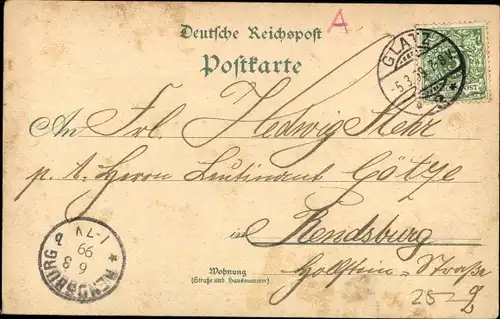 Deutsche Reichspost
A
Postkarte
GLATZ
-5.3.99.7-8
* a *
POST
An Frl. Hedwig Stehr
p. A. Herrn Leutinant Götze
in Rendsburg
Wohnung
(Straße und Hausnummer)
Hollstein-Straße
25-2
RENDSBURG
6 3
99
1-7V